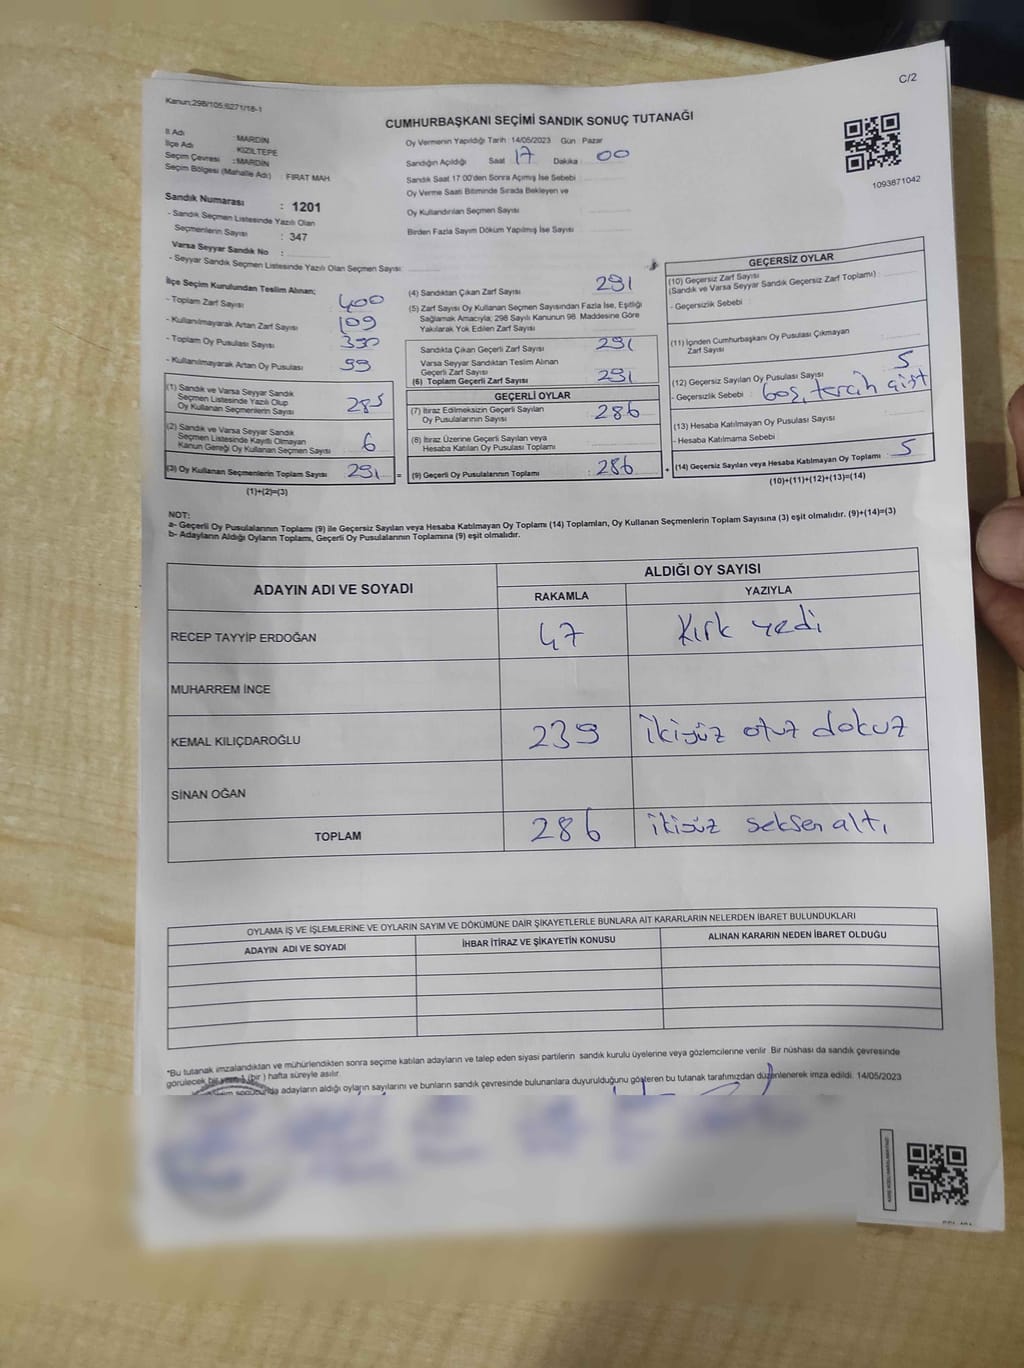 C/2
Kanun;298/105;6271/18-1
CUMHURBAŞKANI SEÇİMİ SANDIK SONUÇ TUTANAĞI
İl Adı : MARDİN
İlçe Adı : KIZILTEPE
Seçim Çevresi : MARDİN
Seçim Bölgesi (Mahalle Adı) : FIRAT MAH.
Sandık Numarası : 1201
- Sandık Seçmen Listesinde Yazılı Olan
Seçmenlerin Sayısı : 347
Varsa Seyyar Sandık No :
- Seyyar Sandık Seçmen Listesinde Yazılı Olan Seçmen Sayısı
Oy Vermenin Yapıldığı Tarih 14/05/2023 Gün Pazar
Sandığın Açıldığı Saat 17 Dakika 00
Sandık Saat 17:00'den Sonra Açımış İse Sebebi
Oy Verme Saati Bitiminde Sırada Bekleyen ve
Oy Kullandırılan Seçmen Sayısı
Birden Fazla Sayım Döküm Yapılmış İse Sayısı
1093871042
İlçe Seçim Kurulundan Teslim Alınan;
- Toplam Zarf Sayısı 400
- Kullanılmayarak Artan Zarf Sayısı 109
- Toplam Oy Pusulası Sayısı 390
- Kullanılmayarak Artan Oy Pusulası 99
(1) Sandık ve Varsa Seyyar Sandık
Seçmen Listesinde Yazılı Olup
Oy Kullanan Seçmenlerin Sayısı 285
(2) Sandık ve Varsa Seyyar Sandık
Seçmen Listesinde Kayıtlı Olmayan
Kanun Gereği Oy Kullanan Seçmen Sayısı 6
(3) Oy Kullanan Seçmenlerin Toplam Sayısı 291 =
(1)+(2)=(3)
(4) Sandıktan Çıkan Zarf Sayısı 291
(5) Zarf Sayısı Oy Kullanan Seçmen Sayısından Fazla İse, Eşitliği
Sağlamak Amacıyla; 298 Sayılı Kanunun 98. Maddesine Göre
Yakılarak Yok Edilen Zarf Sayısı
Sandıkta Çıkan Geçerli Zarf Sayısı 291
Varsa Seyyar Sandıktan Teslim Alınan
Geçerli Zarf Sayısı
(6) Toplam Geçerli Zarf Sayısı 291
GEÇERLİ OYLAR
(7) İtiraz Edilmeksizin Geçerli Sayılan
Oy Pusulalarının Sayısı 286
(8) İtiraz Üzerine Geçerli Sayılan veya
Hesaba Katılan Oy Pusulası Toplamı
(9) Geçerli Oy Pusulalarının Toplamı : 286 +
GEÇERSİZ OYLAR
(10) Geçersiz Zarf Sayısı
(Sandık ve Varsa Seyyar Sandık Geçersiz Zarf Toplamı)
- Geçersizlik Sebebi
(11) İçinden Cumhurbaşkanı Oy Pusulası Çıkmayan
Zarf Sayısı
(12) Geçersiz Sayılan Oy Pusulası Sayısı 5
- Geçersizlik Sebebi boş, tercih çift
(13) Hesaba Katılmayan Oy Pusulası Sayısı
- Hesaba Katılmama Sebebi
(14) Geçersiz Sayılan veya Hesaba Katılmayan Oy Toplamı : 5
(10)+(11)+(12)+(13)=(14)
NOT:
a- Geçerli Oy Pusulalarının Toplamı (9) ile Geçersiz Sayılan veya Hesaba Katılmayan Oy Toplamı (14) Toplamları, Oy Kullanan Seçmenlerin Toplam Sayısına (3) eşit olmalıdır. (9)+(14)=(3)
b- Adayların Aldığı Oyların Toplamı, Geçerli Oy Pusulalarının Toplamına (9) eşit olmalıdır.
ADAYIN ADI VE SOYADI ALDIĞI OY SAYISI
RAKAMLA YAZIYLA
RECEP TAYYİP ERDOĞAN 47 Kırk yedi
MUHARREM İNCE
KEMAL KILIÇDAROĞLU 239 ikiyüz otuz dokuz
SİNAN OĞAN
TOPLAM 286 ikiyüz seksen altı
OYLAMA İŞ VE İŞLEMLERİNE VE OYLARIN SAYIM VE DÖKÜMÜNE DAİR ŞİKAYETLERLE BUNLARA AİT KARARLARIN NELERDEN İBARET BULUNDUKLARI
ADAYIN ADI VE SOYADI İHBAR İTİRAZ VE ŞİKAYETİN KONUSU ALINAN KARARIN NEDEN İBARET OLDUĞU
*Bu tutanak imzalandıktan ve mühürlendikten sonra seçime katılan adayların ve talep eden siyasi partilerin sandık kurulu üyelerine veya gözlemcilerine verilir. Bir nüshası da sandık çevresinde
görülecek bir yere 1 (bir) hafta süreyle asılır.
adayların aldığı oyların sayılarını ve bunların sandık çevresinde bulunanlara duyurulduğunu gösteren bu tutanak tarafımızdan düzenlenerek imza edildi. 14/05/2023